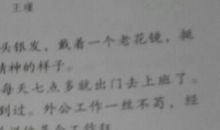 王瑾
头银发，戴着一个老花镜，挺
精神的样子。
每天七点多就出门去上班了。
到过。外公工作一丝不苟，经